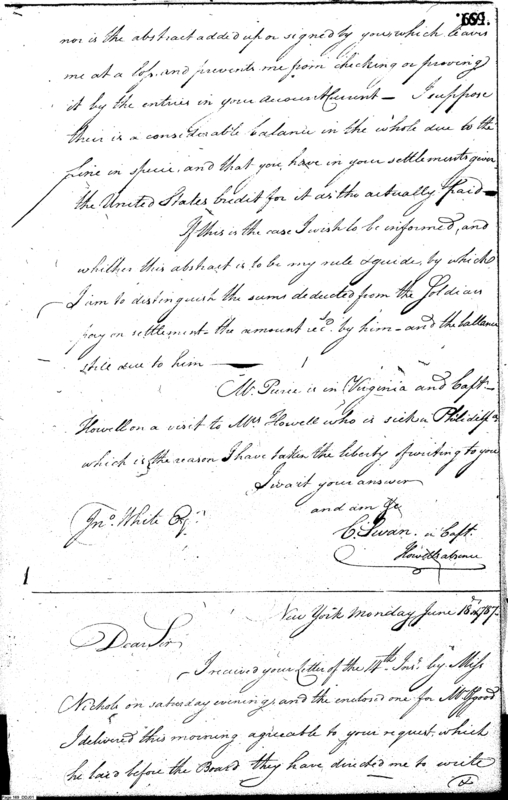 nor is the abstract added up or signed by you which leaves
me at a loss and prevents me from checking or proving
it by the entries in your Account Current — I suppose
their is a considerable balance in the whole due to the
Line in specie, and that you have in your settlements given
the United States Credit for it as tho actually Paid —
If this is the case I wish to be informed, and
whither this abstract is to be my rule & guide, by which
I am to distinguish the sums deducted from the Soldiers
pay on settlement — the amount recd. by him — and the ballance
still due to him —
Mr. Pierce is in Virginia and Capt —
Howell on a visit to Mrs Howell who is sick in Philidelpa
which is the reason I have taken the liberty of writing to you
I wait your answer
and am &c
C. Swan. in Capt.
Howells absence
Jno. White Esqr.
New York Monday June 18th 1787.
Dear Sir
I received your Letter of the 14th. Inst. by Miss
Nichols on saturday evening and the enclosed one for Mr. Osgood
I delivered this morning agreeable to your request, which
he laid before the Board they have directed me to write
Page 169